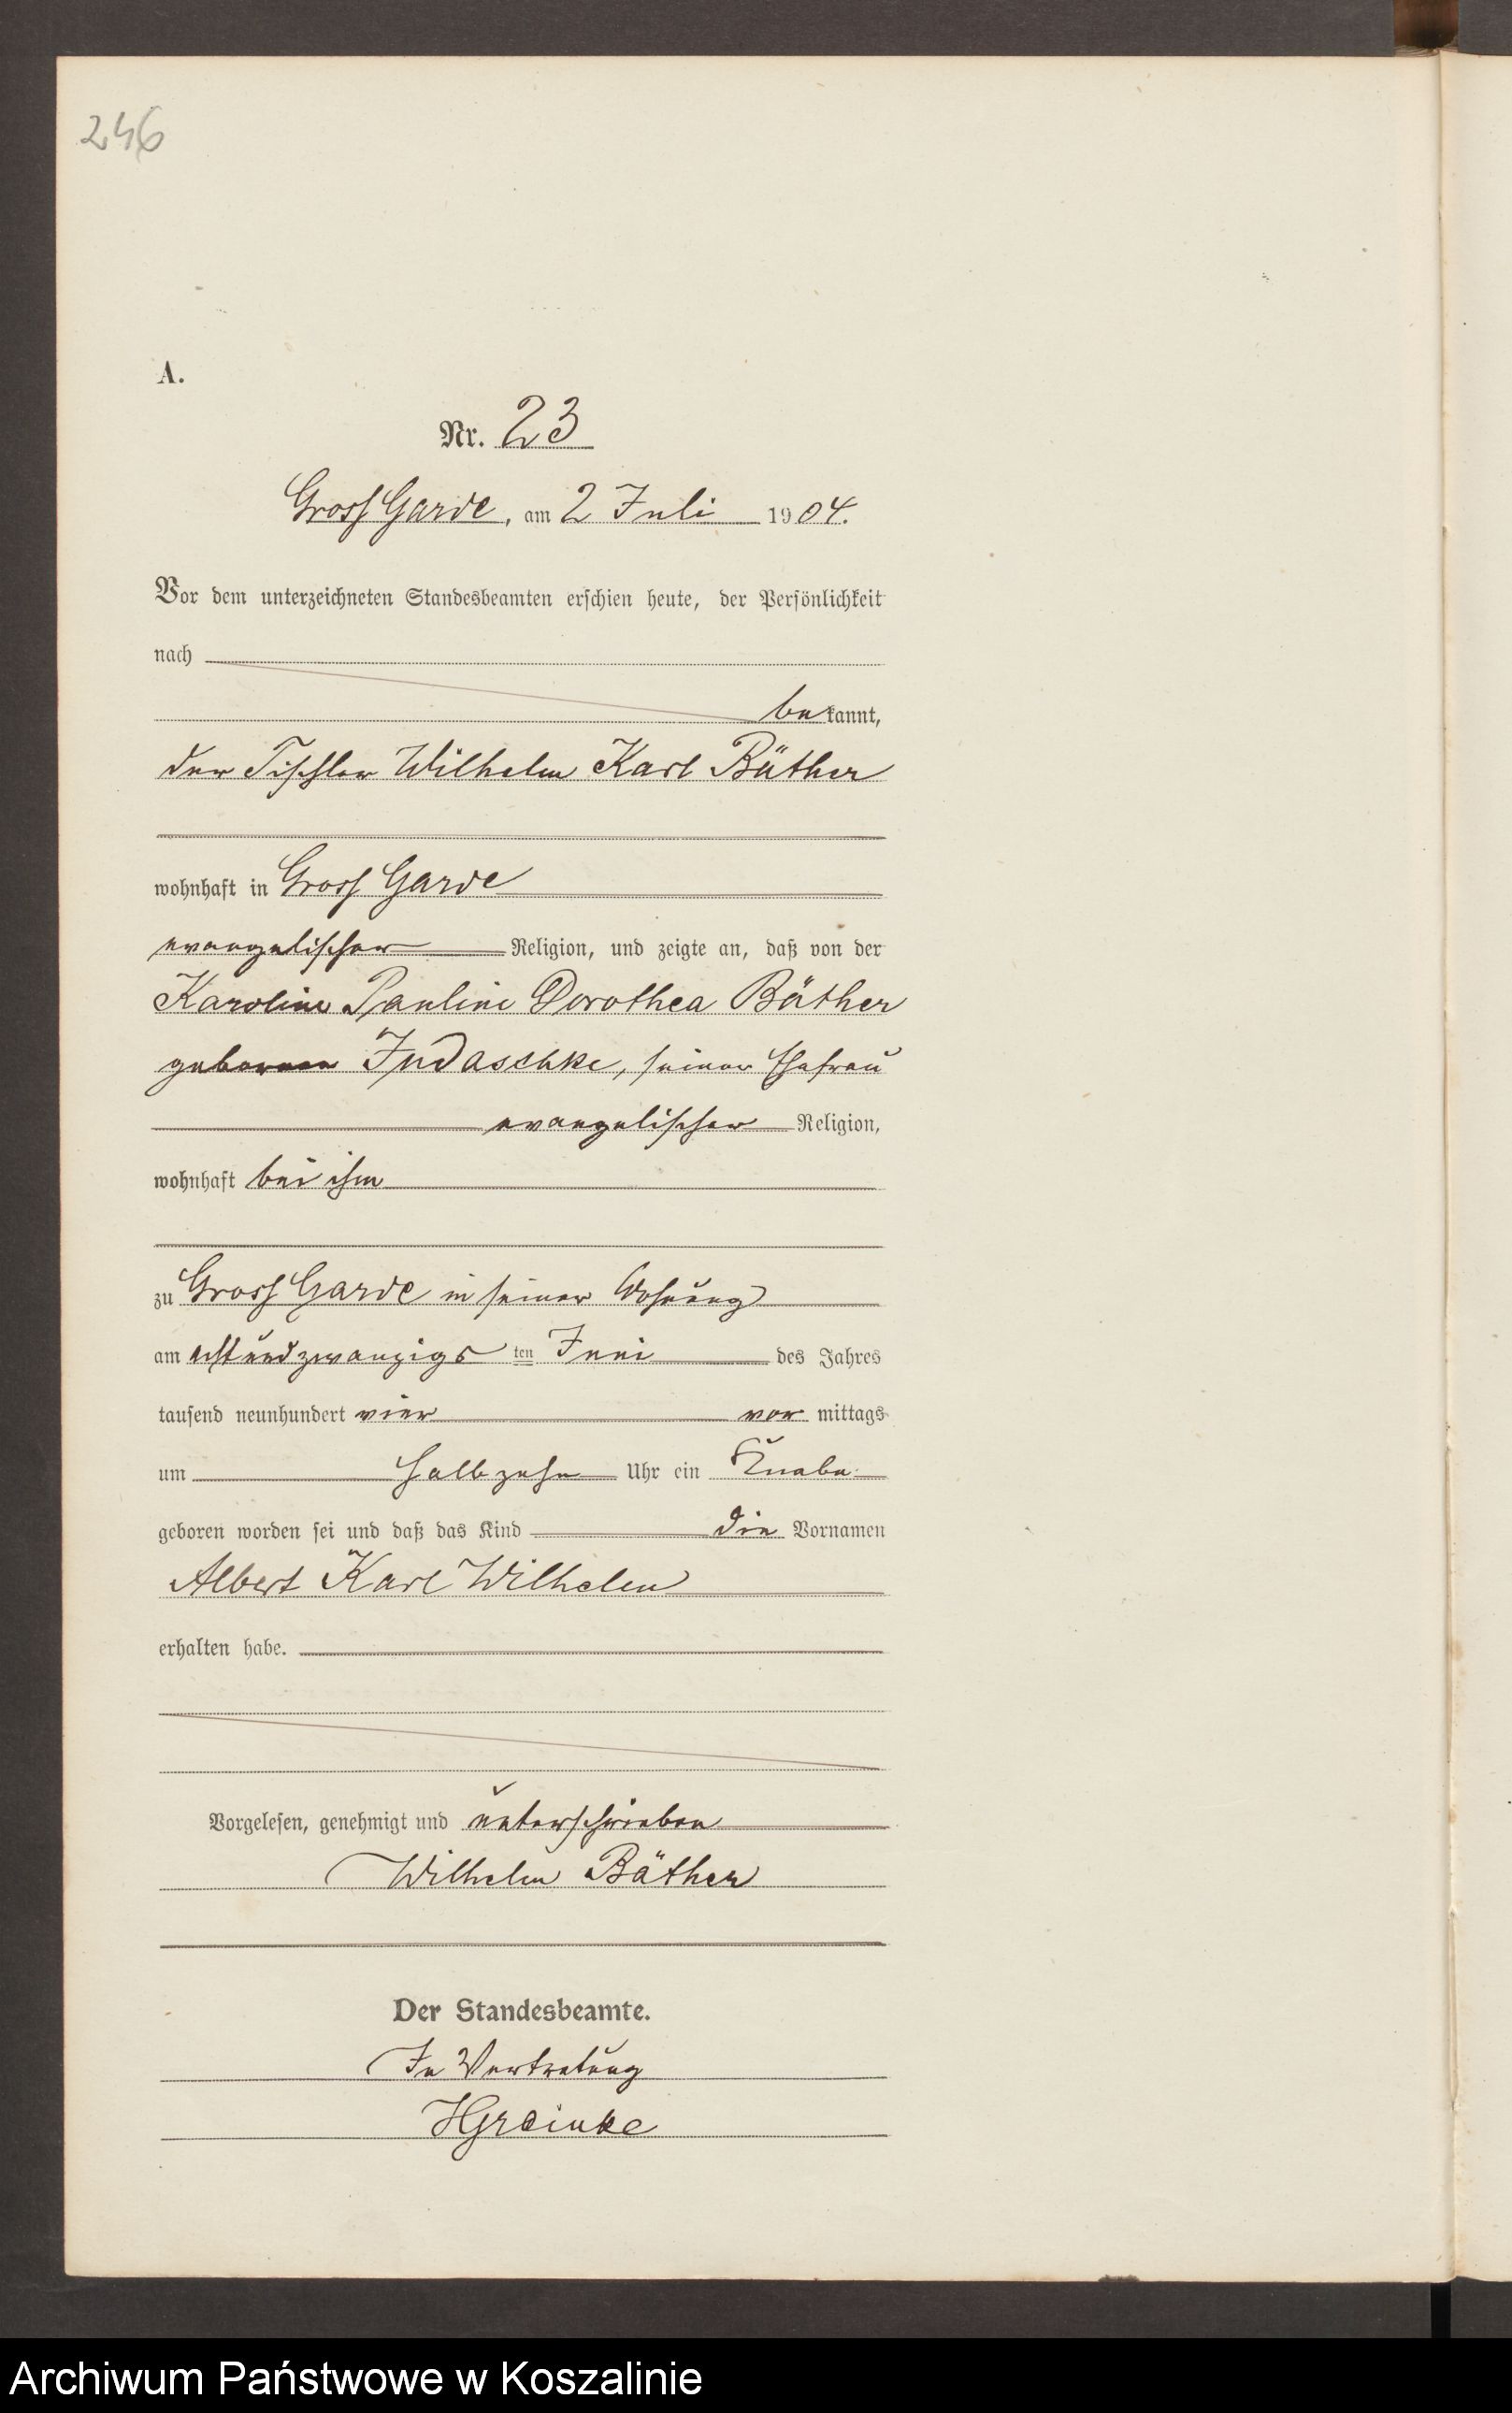 246
A.
Nr. 23
Gross Garde, am 2 Juli 1904.
Vor dem unterzeichneten Standesbeamten erschien heute, der Persönlichkeit
nach
bekannt,
der Tischler Wilhelm Karl Bäther
wohnhaft in Gross Garde
evangelischer Religion, und zeigte an, daß von der
Karoline Pauline Dorothea Bäther
geborenen Judaschke, seiner Ehefrau
evangelischer Religion,
wohnhaft bei ihm
zu Gross Garde in seiner Wohnung
am achtundzwanzigsten Juni des Jahres
tausend neunhundert vier vormittags
um halb zehn Uhr ein Knabe
geboren worden sei und daß das Kind die Vornamen
Albert Karl Wilhelm
erhalten habe.
Vorgelesen, genehmigt und unterschrieben
Wilhelm Bäther
Der Standesbeamte.
In Vertretung
Archiwum Państwowe w Koszalinie